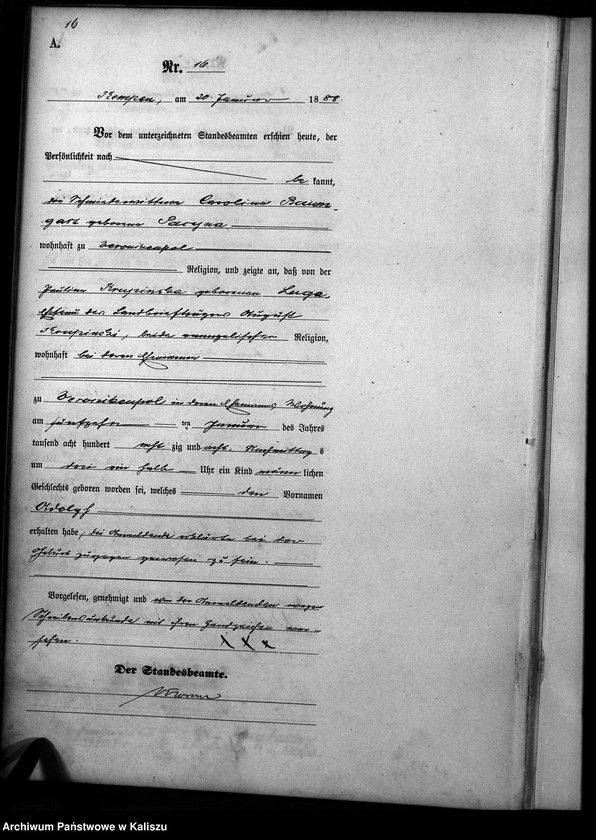 16
A.
Nr. 16
Kempen, am 20. Januar 1888
Vor dem unterzeichneten Standesbeamten erschien heute, der
Persönlichkeit nach
be kannt,
die Schmiedewittwe Carolina Baum-
gart geborene
wohnhaft zu
Religion, und zeigte an, daß von der
Pauline Krupinska geborenen Luga,
Ehefrau des Landbriefträgers August
Krupinski, beide evangelischer Religion,
wohnhaft bei deren Ehemann
zu in deren Ehemanns Wohnung
am fünfzehn ten Januar des Jahres
tausend acht hundert acht zig und acht, Nachmittag s
um drei ein halb Uhr ein Kind männ lichen
Geschlechts geboren worden sei, welches den Vornamen
Adolf
erhalten habe, die Anmeldende erklärte bei der
Geburt zugegen gewesen zu sein.
Vorgelesen, genehmigt und von der Anmeldenden wegen
Schreibensunkunde mit ihren Handzeichen ver-
sehen. X X X
Der Standesbeamte.
Archiwum Państwowe w Kaliszu